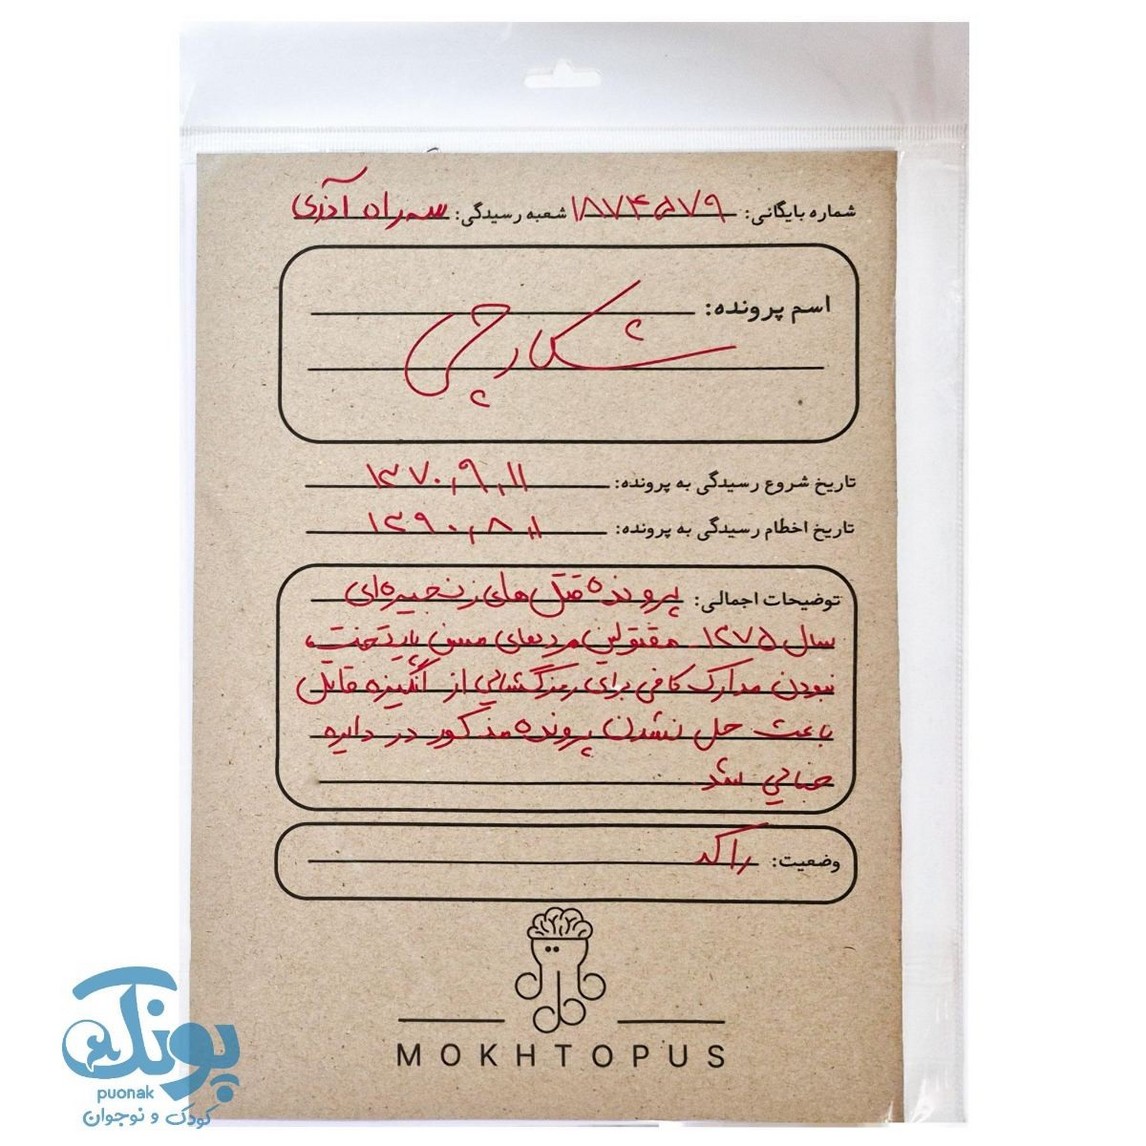 شماره بایگانی: ۱۸۷۴۵۷۹ شعبه رسیدگی: سه راه آذری
اسم پرونده:
شکارچی
تاریخ شروع رسیدگی به پرونده: ۱۳۷۰٫۹٫۱۱
تاریخ اخطام رسیدگی به پرونده: ۱۳۹۰٫۸٫۱
توضیحات اجمالی: پرونده قتل های زنجیره‌ای
سال ۱۳۷۵. مقتولین مردهای مسن پایتخت،
نبودن مدارک کافی برای رمزگشایی از انگیزه قاتل
باعث حل نشدن پرونده مذکور در دایره
جنایی شد
وضعیت: راکد
MOKHTOPUS
پونک
puonak
کودک و نوجوان